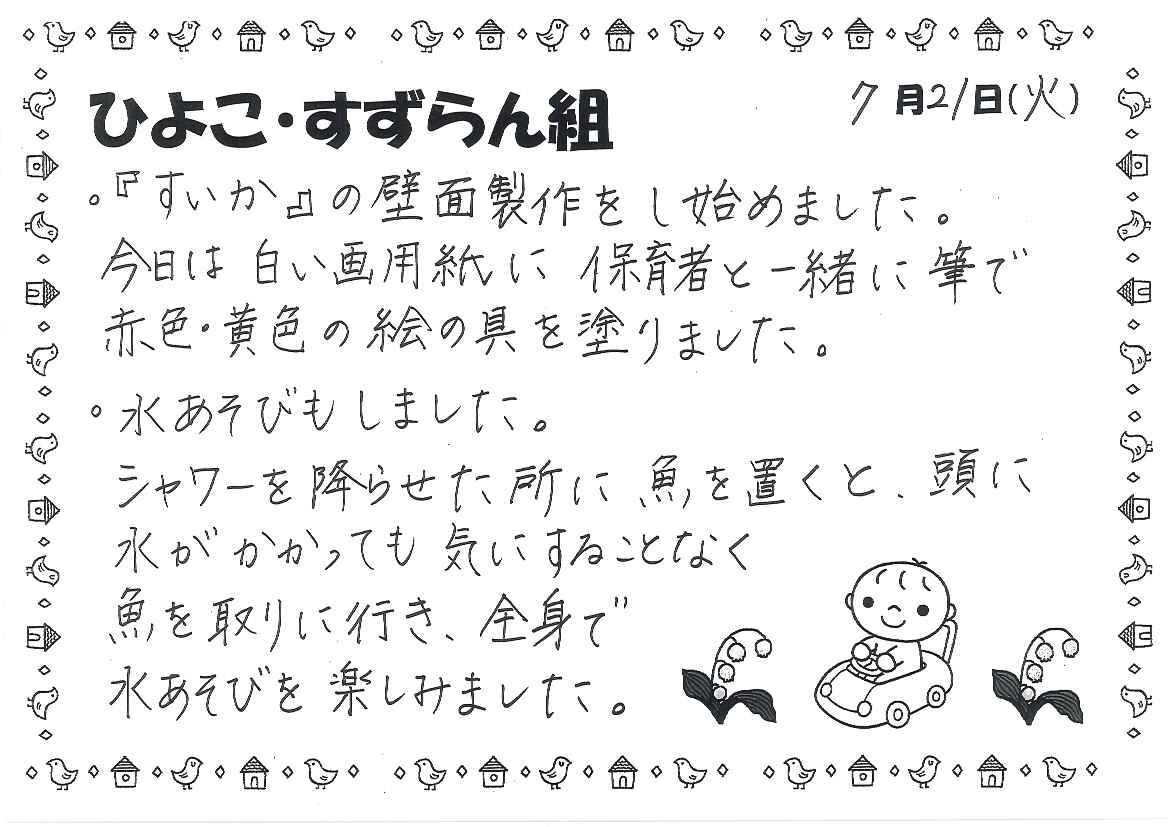 ひよこ・すずらん組
7月21日(火)
。『すいか』の壁面製作をし始めました。
今日は白い画用紙に保育者と一緒に筆で
赤色・黄色の絵の具を塗りました。
。水あそびもしました。
シャワーを降らせた所に魚を置くと、頭に
水がかかっても気にすることなく
魚を取りに行き、全身で
水あそびを楽しみました。